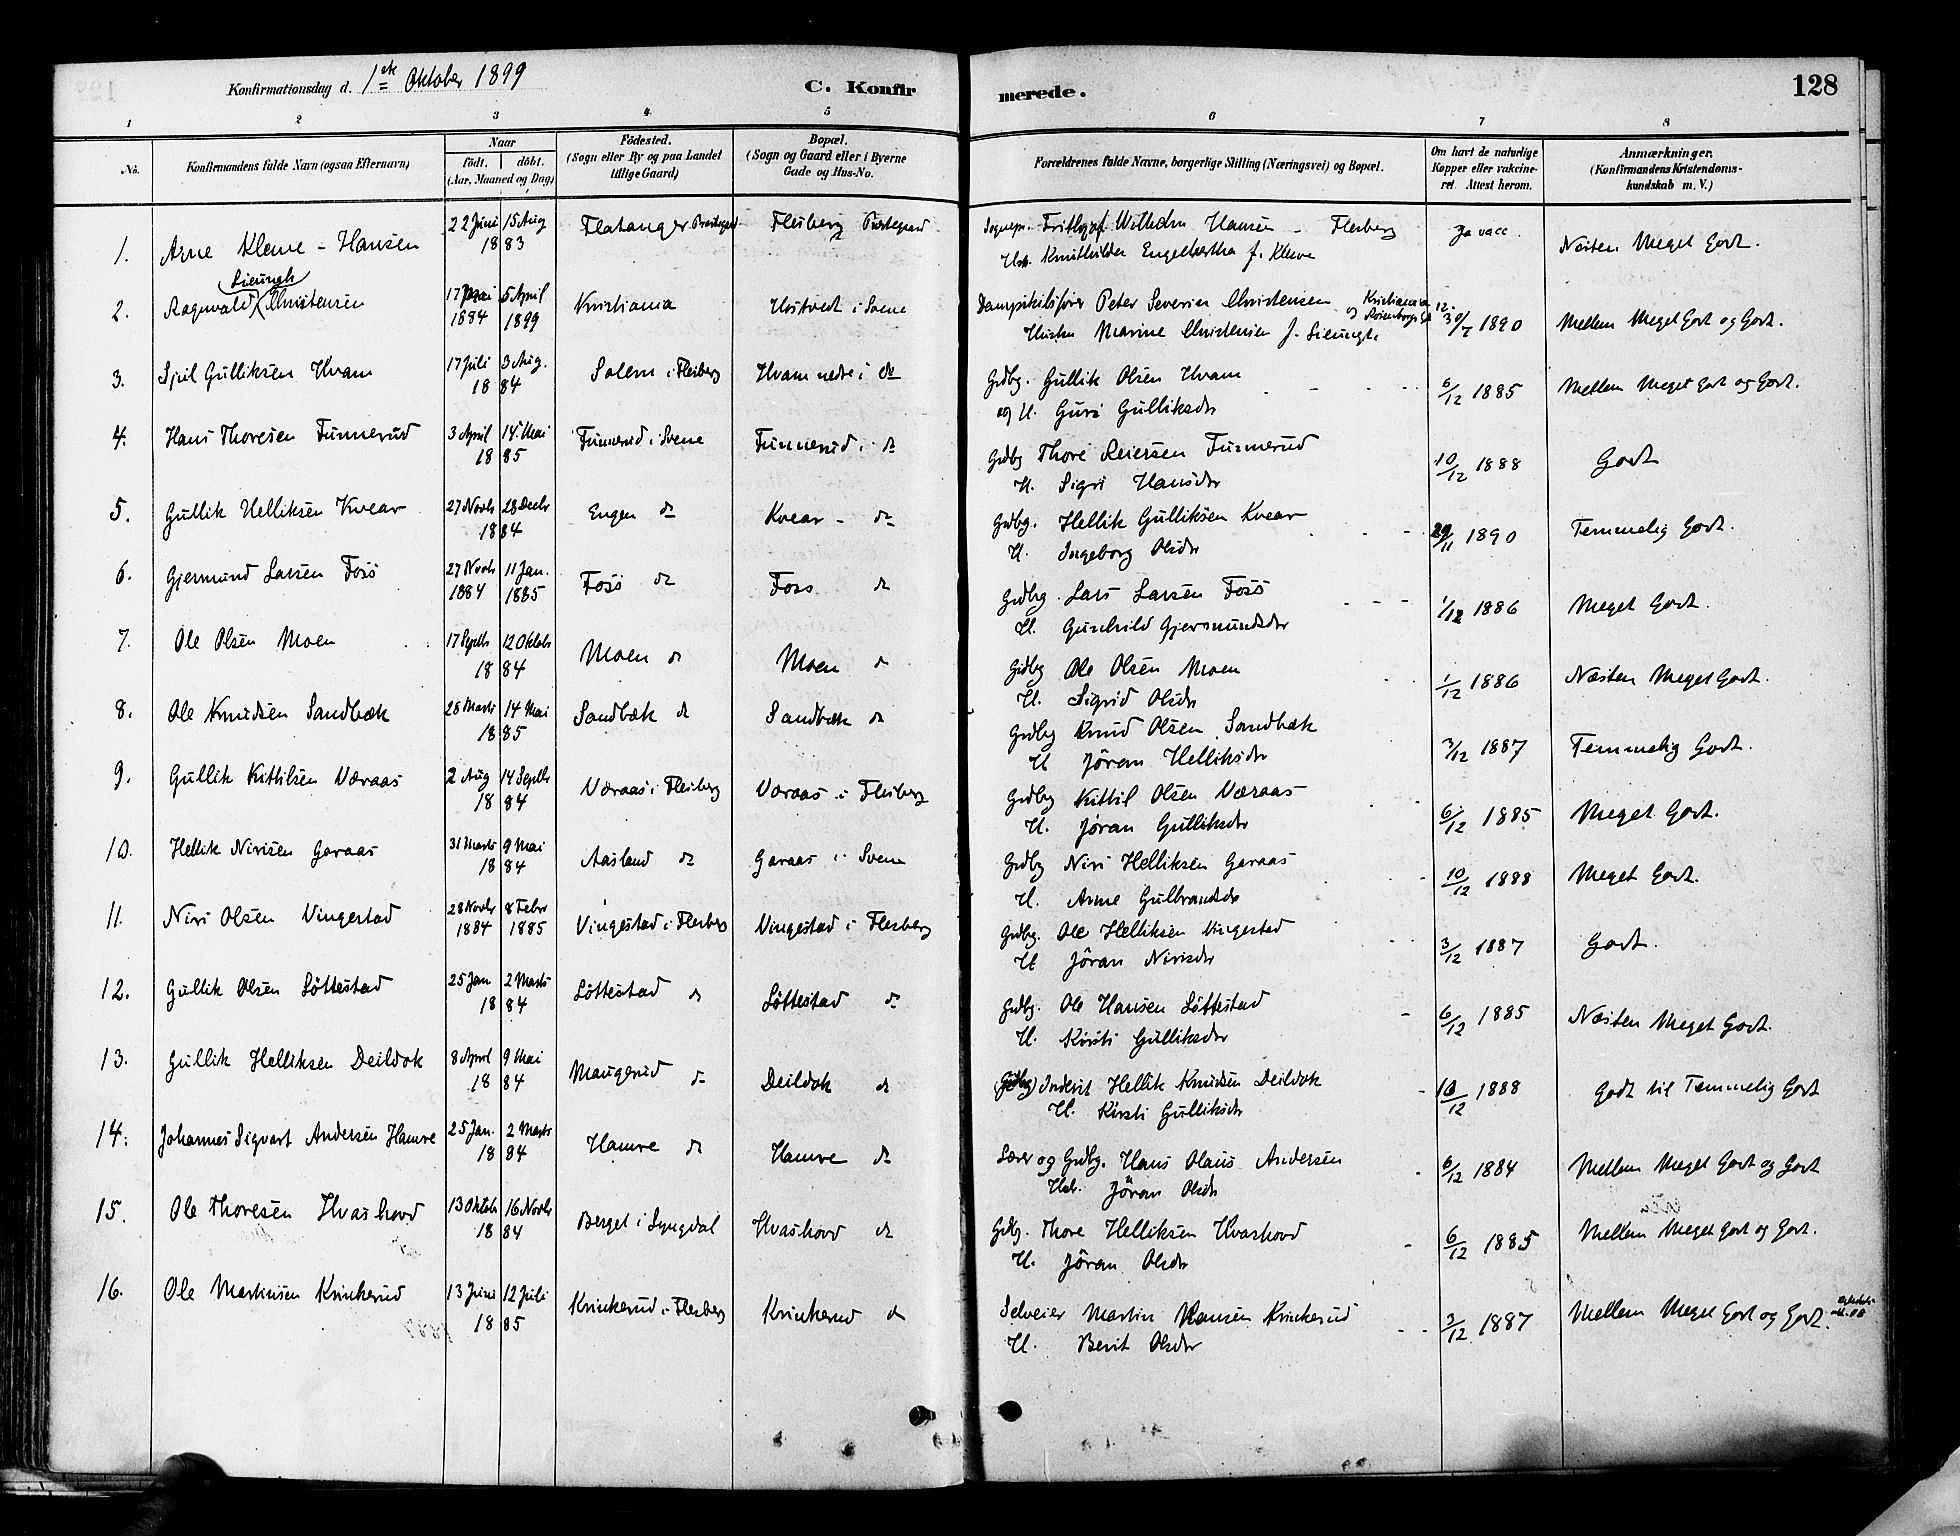 Konfirmationsdag d. 1ste Oktober 1899 C. Konfirmerede. 128
1 2 3 4 5 6 7 8
No. Konfirmandens fulde Navn (ogsaa Efternavn) Naar født. døbt. (Aar, Maaned og Dag) Födested. (Sogn eller By og paa Landet tillige Gaard) Bopæl. (Sogn og Gaard eller i Byerne Gade og Hus-No. Forældrenes fulde Navne, borgerlige Stilling (Næringsvei) og Bopæl. Om havt de naturlige Kopper eller vaccineret. Attest herom. Anmærkninger. (Konfirmandens Kristendomskundskab m. V.)
1. Arne Kleve - Hansen 22 Juni 15 Aug 1883 Flatanger Præstegaard Flesberg Præstegaard Sognepr. Frithjof Wilhelm Hansen - Flesberg Ja vacc. Næsten Meget Godt.
H. Engelbertha f. Kleve
2. Ragnvald Christensen 17 Mai 1884 5 April 1899 Kristiania Hostvedt i Svene Dampskibsfører Peter Severin Christensen Kristiania 30/7 1890 Mellem Meget Godt og Godt.
Hustru Marine Christensen f.
3. Gulliksen Hvam 17 Juli 3 Aug. 1884 Solem i Flesberg Hvam nedre i do Grdbg. Gullik Olsen Hvam 6/12 1885 Mellem Meget Godt og Godt.
og H. Guri Gulliksdr
4. Hans Thoresen Funnerud 3 April 14 Mai 1885 Funnerud i Svene Funnerud i do Grdbg Thore Reiersen Funnerud 10/12 1888 Godt
H. Sigri Hansdr
5. Gullik Helliksen Kvear 27 Novb 28 Decbr 1884 Engen do Kvear - do Grdbg. Hellik Gulliksen Kvear 29/11 1890 Temmelig Godt.
H. Ingeborg Olsdr
6. Gjermund Larsen Foss 27 Novb 1884 11 Jan. 1885 Foss do Foss do Grdbg. Lars Larsen Foss 1/12 1886 Meget Godt.
H. Gunhild Gjermundsdr
7. Ole Olsen Moen 17 Septb 12 Oktob 1884 Moen do Moen do Grdbg Ole Olsen Moen 1/12 1886 Næsten Meget Godt.
H. Sigrid Olsdr
8. Ole Knudsen Sandbæk 26 Marts 14 Mai 1885 Sandbæk do Sandbæk do Grdbg Knud Olsen Sandbæk 3/12 1887 Temmelig Godt.
H Jöran Helliksdr
9. Gullik Kittilsen Væraas 2 Aug 14 Septbr 1884 Væraas i Flesberg Væraas i Flesberg Grdbg Kittil Olsen Væraas 6/12 1885 Meget Godt.
H. Jöran Gulliksdr
10. Hellik Nirisen Garaas 31 Marts 9 Mai 1884 Aasland do Garaas i Svene Grdbg Niri Helliksen Garaas 10/12 1888 Meget Godt.
H. Anne Gulbrandsdr
11. Niri Olsen Vingestad 28 Novbr 1884 8 Febr 1885 Vingestad i Flesberg Vingestad i Flesberg Grdbg. Ole Helliksen Vingestad 3/12 1887 Godt.
H Jöran Nirisdr
12. Gullik Olsen Löttestad 25 Jan 2 Marts 1884 Löttestad do Löttestad do Grdbg. Ole Hansen Löttestad 6/12 1885 Næsten Meget Godt.
H. Kirsti Gulliksdr
13. Gullik Helliksen Deildok 8 April 9 Mai 1884 Maugerud do Deildok do Inderst Hellik Knudsen Deildok 10/12 1888 Godt til Temmelig Godt
H. Kirsti Gulliksdr
14. Johannes Sigvart Andersen Hamre 25 Jan. 2 Marts 1884 Hamre do Hamre do Lærer og Grdbg. Hans Olaus Andersen 6/12 1884 Mellem Meget Godt og Godt
Hst. Jöran Olsdr
15. Ole Thoresen Hvashovd 13 Oktob 16 Novbr 1884 Berget i Lyngdal Hvashovd do Grdbg. Thore Helliksen Hvashovd 6/12 1885 Mellem Meget Godt og Godt.
H. Jöran Olsdr
16. Ole Martinsen Krinkerud 13 Juni 12 Juli 1885 Krinkerud i Flesberg Krinkerud do Selveier Martin Hansen Krinkerud 3/12 1887 Mellem Meget Godt og Godt.
H. Berit Olsdr